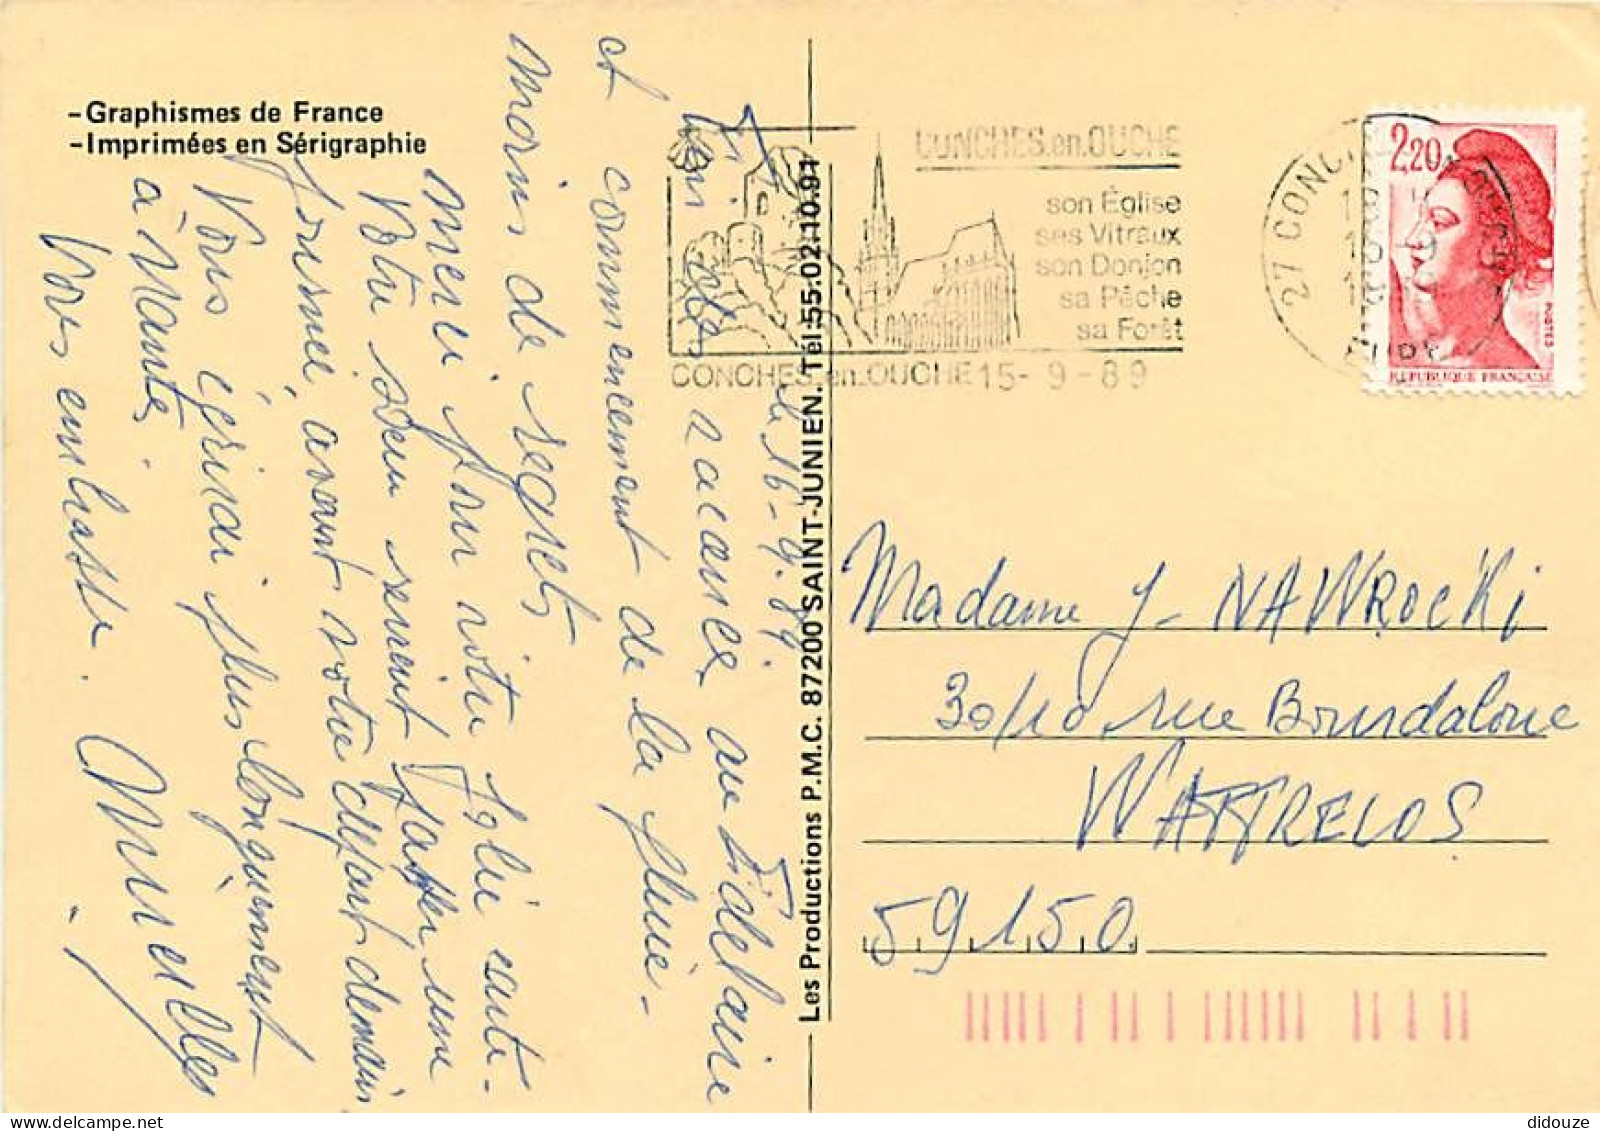 -Graphismes de France
-Imprimées en Sérigraphie
le 16-9-89.
vacances au
et commencement de la pluie -
moins de regret
merci pour votre carte-
Votre sœur serait une
journée, avant votre départ demain
Vous écrirai plus longuement
à Nantes
Vous embrasse.
Les Productions P.M.C. 87200 SAINT-JUNIEN. Tél:55.02.10.91
CONCHES.en.OUCHE
son Église
ses Vitraux
son Donjon
sa Pêche
sa Forêt
CONCHES.en.OUCHE 15- 9 -89
27 CONCHES
EURE
2,20
POSTES
REPUBLIQUE FRANÇAISE
Madame J- NAWROCKi
30/10 rue Bourdaloue
WATTRELOS
59150
didouze